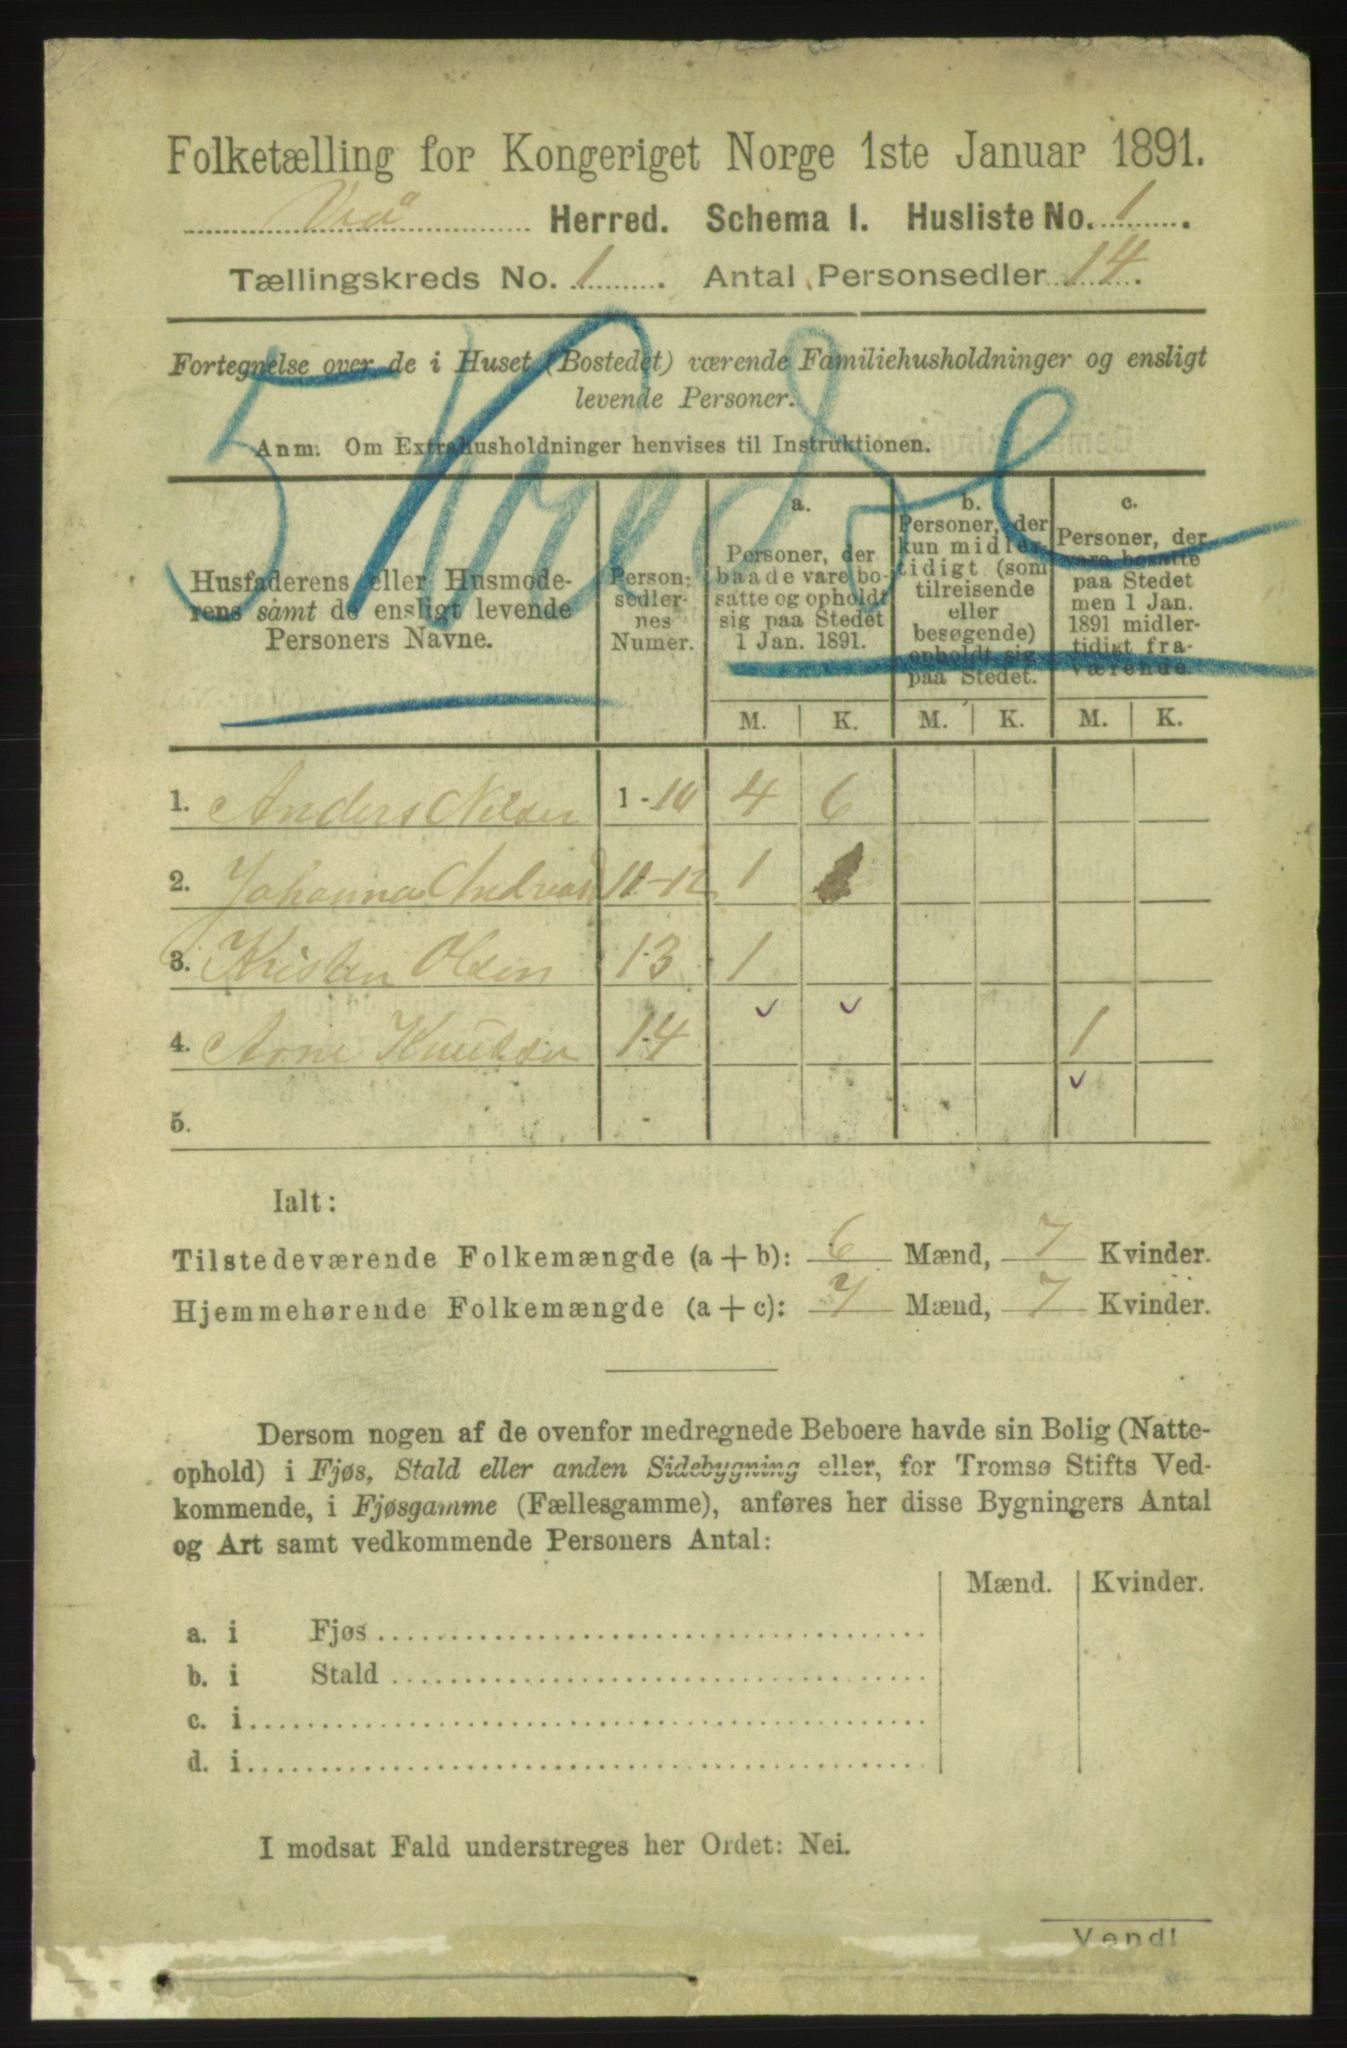 Folketælling for Kongeriget Norge 1ste Januar 1891.
Herred. Schema I. Husliste No. 1.
Tællingskreds No. 1. Antal Personsedler 14.
Fortegnelse over de i Huset (Bostedet) værende Familiehusholdninger og ensligt
levende Personer.
Anm. Om Extrahusholdninger henvises til Instruktionen.
5 Kredse
Husfaderens eller Husmode-
rens samt de ensligt levende
Personers Navne.
Person-
sedler-
nes
Numer.
a.
Personer, der
baade vare bo-
satte og opholdt
sig paa Stedet
1 Jan. 1891.
b.
Personer, der
kun midler-
tidigt (som
tilreisende
eller
besøgende)
opholdt sig
paa Stedet.
c.
Personer, der
vare bosatte
paa Stedet
men 1 Jan.
1891 midler-
tidigt fra-
værende.
M. K. M. K. M. K.
1. Anders Nilsen 1-10 4 6
2. Johanna 11-12 1
3. Kristen Olsen 13 1
4. Arne Knutsen 14 1
5. -
Ialt:
Tilstedeværende Folkemængde (a+b): 6 Mænd, 7 Kvinder.
Hjemmehørende Folkemængde (a+c): 7 Mænd, 7 Kvinder.
Dersom nogen af de ovenfor medregnede Beboere havde sin Bolig (Natte-
ophold) i Fjøs, Stald eller anden Sidebygning eller, for Tromsø Stifts Ved-
kommende, i Fjøsgamme (Fællesgamme), anføres her disse Bygningers Antal
og Art samt vedkommende Personers Antal:
Mænd. Kvinder.
a. i Fjøs
b. i Stald
c. i
d. i
I modsat Fald understreges her Ordet: Nei.
Vend!